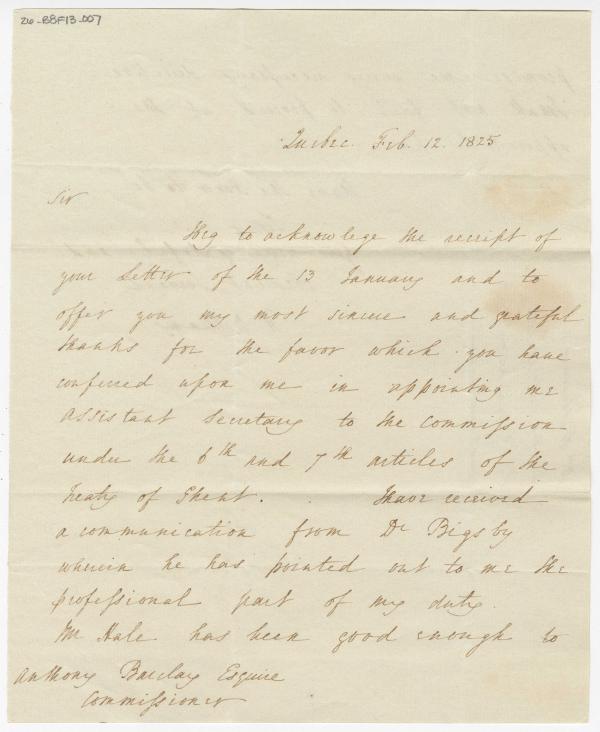 26-B8F13-007
Quebec. Feb. 12. 1825
Sir
I beg to acknowlege the receipt of
your Letter of the 13 January and to
offer you my most sincere and grateful
thanks for the favor which you have
conferred upon me in appointing me
Assistant Secretary to the Commission
under the 6th and 7th articles of the
Treaty of Ghent. I have received
a communication from Dr Bigsby
wherein he has pointed out to me the
professional part of my duty.
Mr Hale has been good enough to
Anthony Barclay Esquire
Commissioner